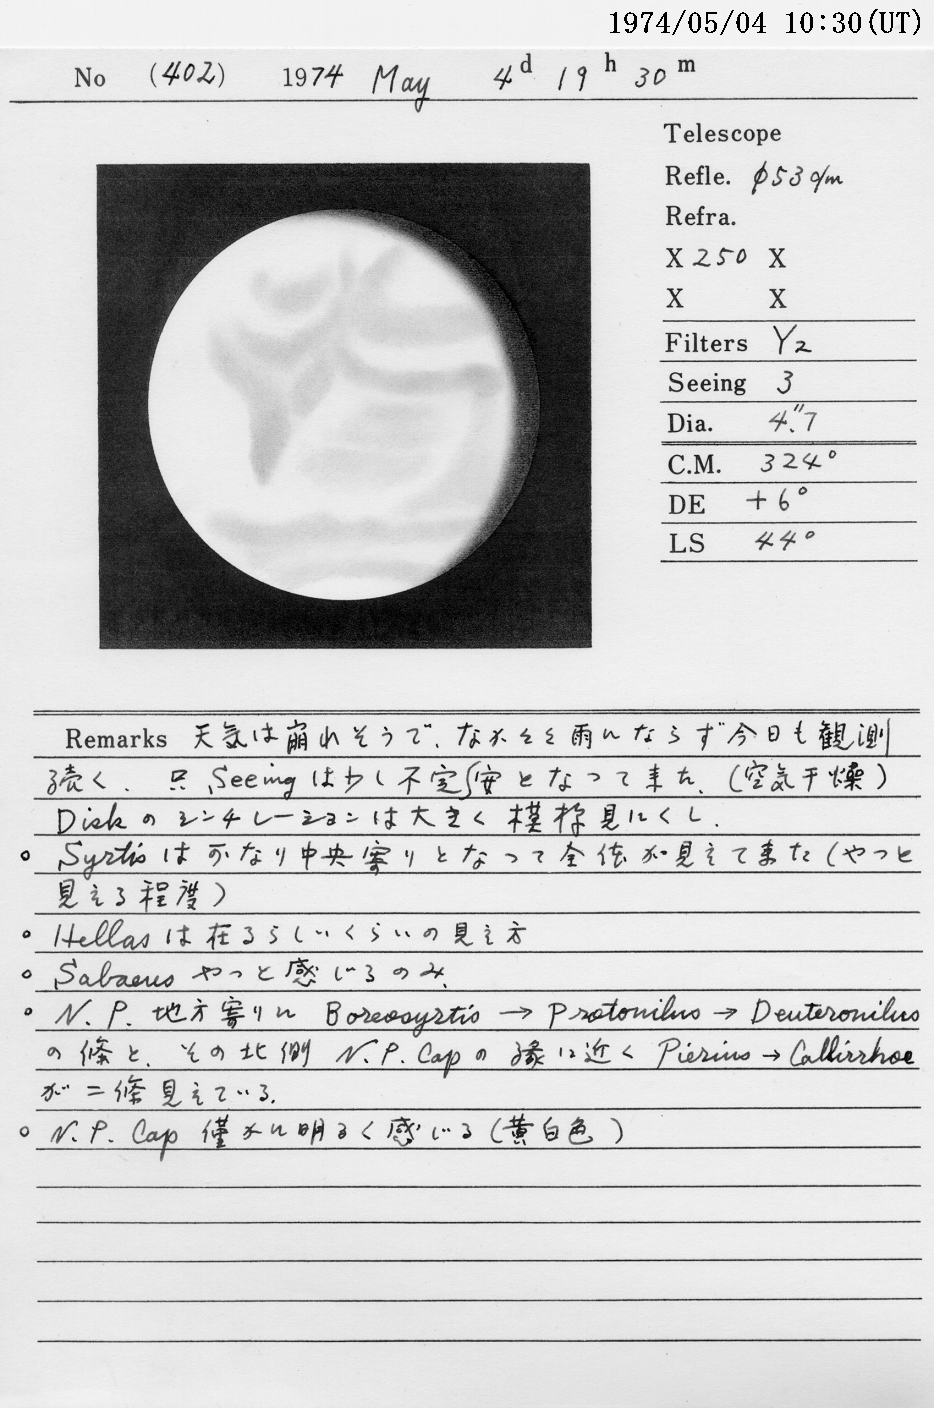 1974/05/04 10:30(UT)
No (402) 1974 May 4d 19h 30m
Telescope
Refle. φ53cm
Refra.
X 250 X
X X
Filters Y2
Seeing 3
Dia. 4."7
C.M. 324°
DE +6°
LS 44°
Remarks 天気は崩れそうで、なかなか雨にならず今日も観測
続く. 只、Seeingは少し不安定となって来た、(空気干燥)
Diskのシンチレーションは大きく模様見にくし.
○ Syrtisはかなり中央寄りとなって全体が見えて来た(やっと
見える程度)
○ Hellasは在るらしいくらいの見え方
○ Sabaeusやっと感じるのみ.
○ N.P.地方寄りに Boreosyrtis → Protonilus → Deuteronilus
の條と、その北側 N.P.Capの縁に近く Pierius → Callirrhoe
が二條見えている.
○ N.P. Cap 僅かに明るく感じる(黄白色)